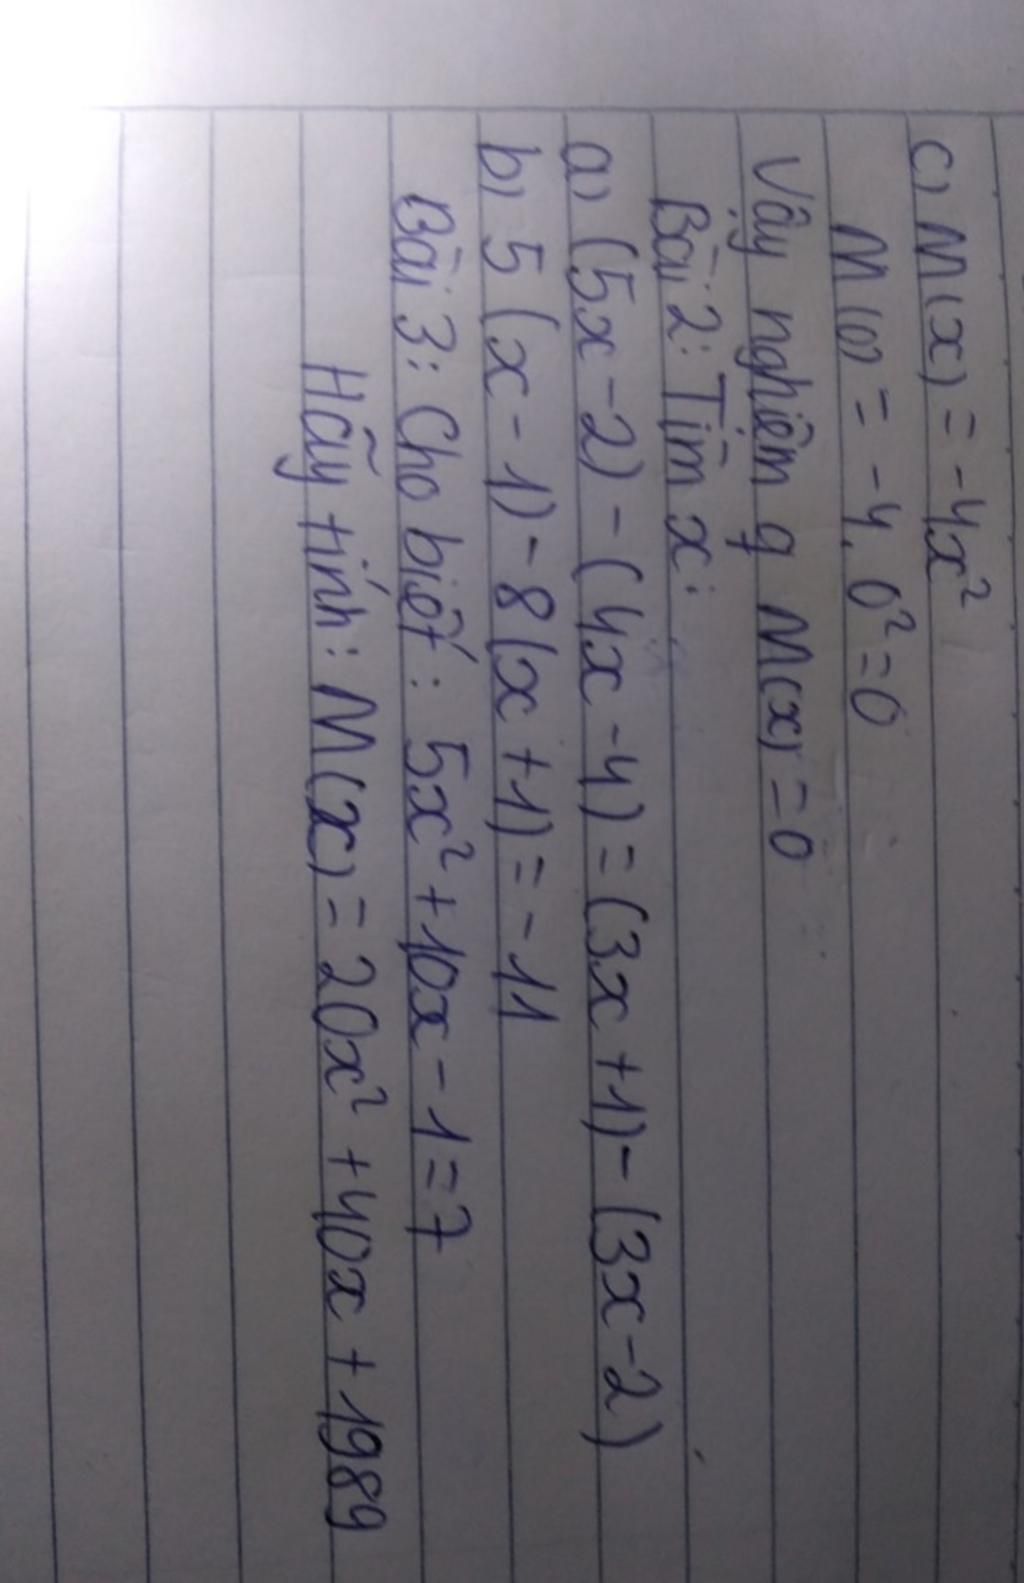 c) M(x) = -4x²
M(0) = -4.0² = 0
Vậy nghiệm q M(x) = 0
Bài 2: Tìm x:
a) (5x-2) - (4x-4) = (3x+1) - (3x-2)
b) 5(x-1) - 8(x+1) = -11
Bài 3: Cho biết: 5x² + 10x - 1 = 7
Hãy tính: M(x) = 20x² + 40x + 1989